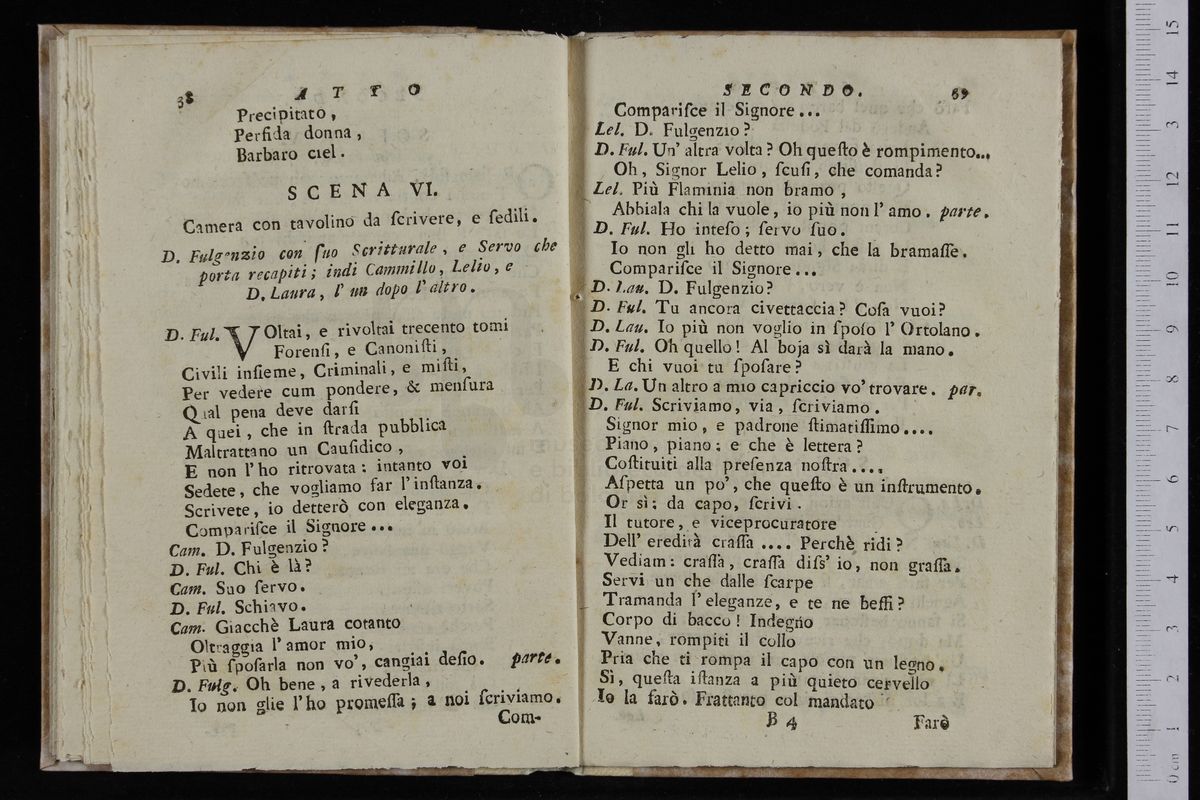 38 ATTO
Precipitato,
Perfida donna,
Barbaro ciel.
SCENA VI.
Camera con tavolino da ſcrivere, e ſedili.
D. Fulgenzio con ſuo Scritturale, e Servo che
porta recapiti; indi Cammillo, Lelio, e
D. Laura, l' un dopo l' altro.
D. Ful. VOltai, e rivoltai trecento tomi
Forenſi, e Canoniſti,
Civili inſieme, Criminali, e miſti,
Per vedere cum pondere, & menſura
Qual pena deve darſi
A quei, che in ſtrada pubblica
Maltrattano un Cauſidico,
E non l' ho ritrovata: intanto voi
Sedete, che vogliamo far l' inſtanza.
Scrivete, io detterò con eleganza.
Compariſce il Signore...
Cam. D. Fulgenzio?
D. Ful. Chi è là?
Cam. Suo ſervo.
D. Ful. Schiavo.
Cam. Giacchè Laura cotanto
Oltraggia l' amor mio,
Più ſpoſarla non vo', cangiai deſio. parte.
D. Fulg. Oh bene, a rivederla,
Io non glie l' ho promeſſa; a noi ſcriviamo.
Com-
SECONDO. 39
Compariſce il Signore...
Lel. D. Fulgenzio?
D. Ful. Un' altra volta? Oh queſto è rompimento...
Oh, Signor Lelio, ſcuſi, che comanda?
Lel. Più Flaminia non bramo,
Abbiala chi la vuole, io più non l' amo. parte.
D. Ful. Ho inteſo; ſervo ſuo.
Io non gli ho detto mai, che la bramaſſe.
Compariſce il Signore...
D. Lau. D. Fulgenzio?
D. Ful. Tu ancora civettaccia? Coſa vuoi?
D. Lau. Io più non voglio in ſpoſo l' Ortolano.
D. Ful. Oh quello! Al boja sì darà la mano.
E chi vuoi tu ſpoſare?
D. La. Un altro a mio capriccio vo' trovare. par.
D. Ful. Scriviamo, via, ſcriviamo.
Signor mio, e padrone ſtimatiſſimo....
Piano, piano: e che è lettera?
Coſtituiti alla preſenza noſtra....
Aſpetta un po', che queſto è un inſtrumento.
Or sì: da capo, ſcrivi.
Il tutore, e viceprocuratore
Dell' eredità craſſa .... Perchè ridi?
Vediam: craſſa, craſſa diſs' io, non graſſa.
Servi un che dalle ſcarpe
Tramanda l' eleganze, e te ne beffi?
Corpo di bacco! Indegno
Vanne, rompiti il collo
Pria che ti rompa il capo con un legno.
Sì, queſta iſtanza a più quieto cervello
Io la farò. Frattanto col mandato
B 4 Farò